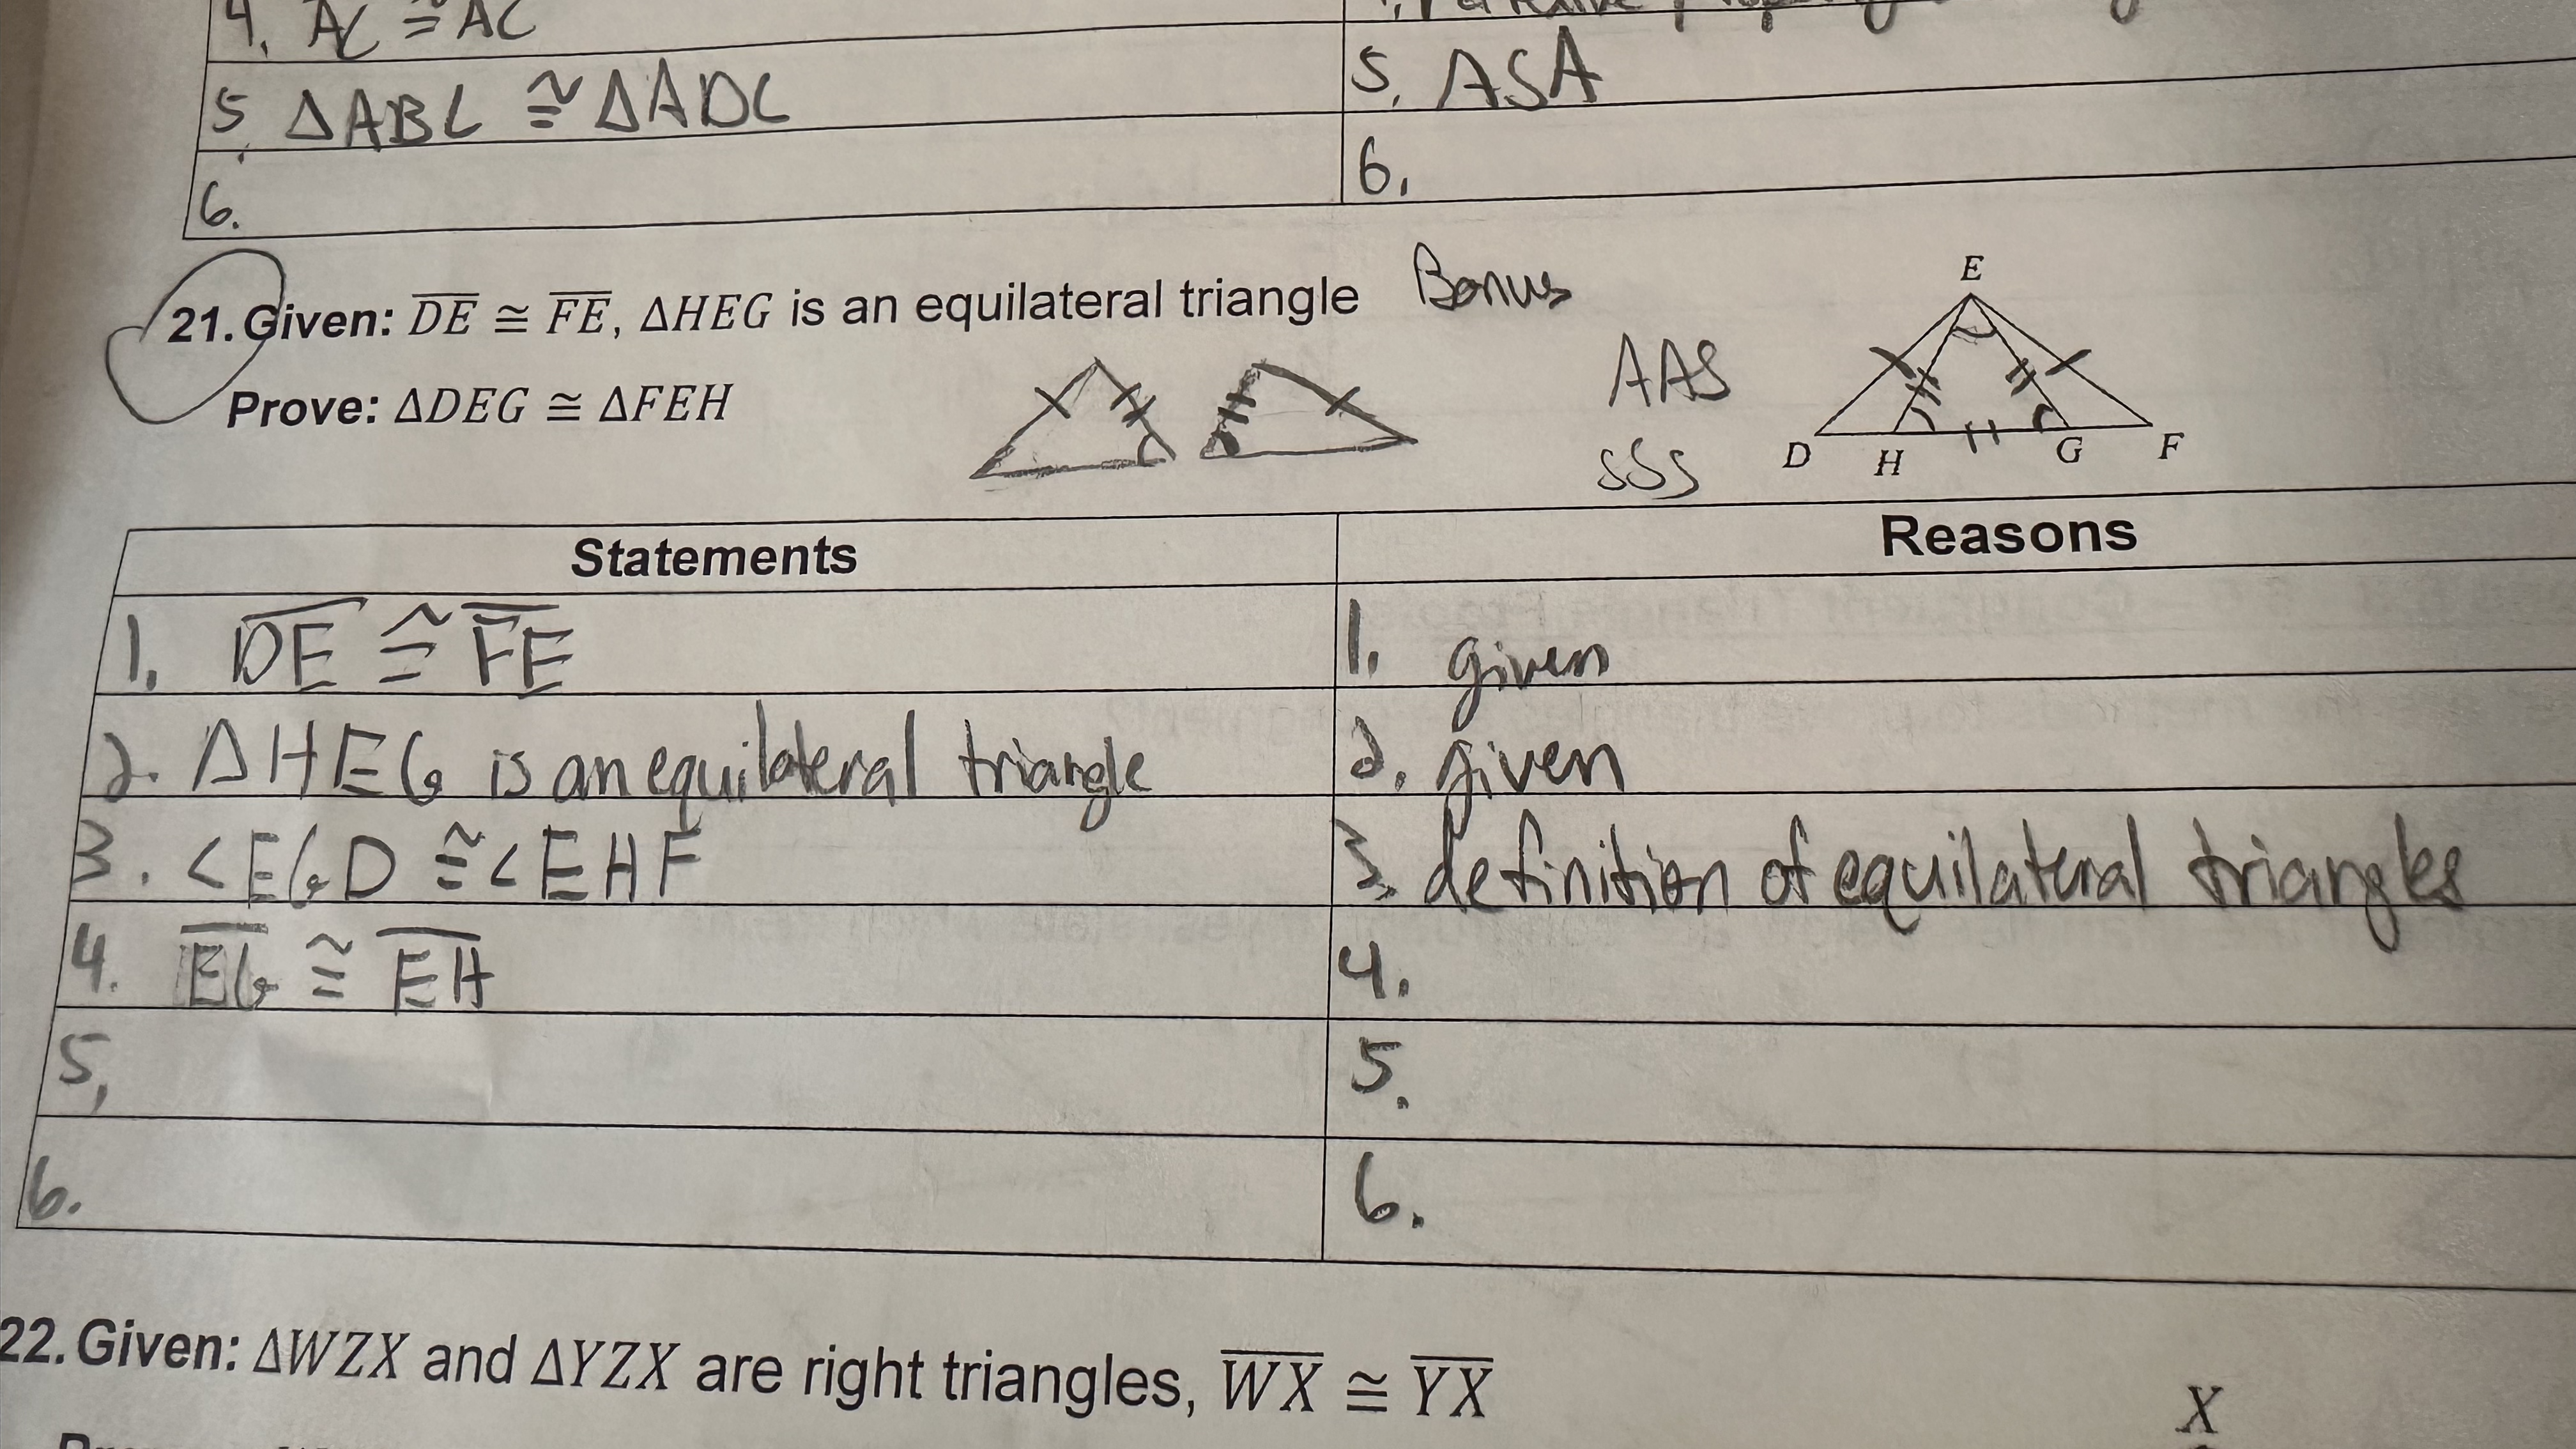 4. AC ≅ AC
5. ΔABC ≅ ΔADC
5. ASA
6.
6.
21. Given: DE ≅ FE, ΔHEG is an equilateral triangle Bonus
Prove: ΔDEG ≅ ΔFEH
AAS
SSS
E
D H G F
Statements Reasons
1. DE ≅ FE
1. given
2. ΔHEG is an equilateral triangle
2. given
3. <EGD ≅ <EHF
3. definition of equilateral triangles
4. EG ≅ EH
4.
5,
5.
6.
6.
22. Given: ΔWZX and ΔYZX are right triangles, WX ≅ YX
X